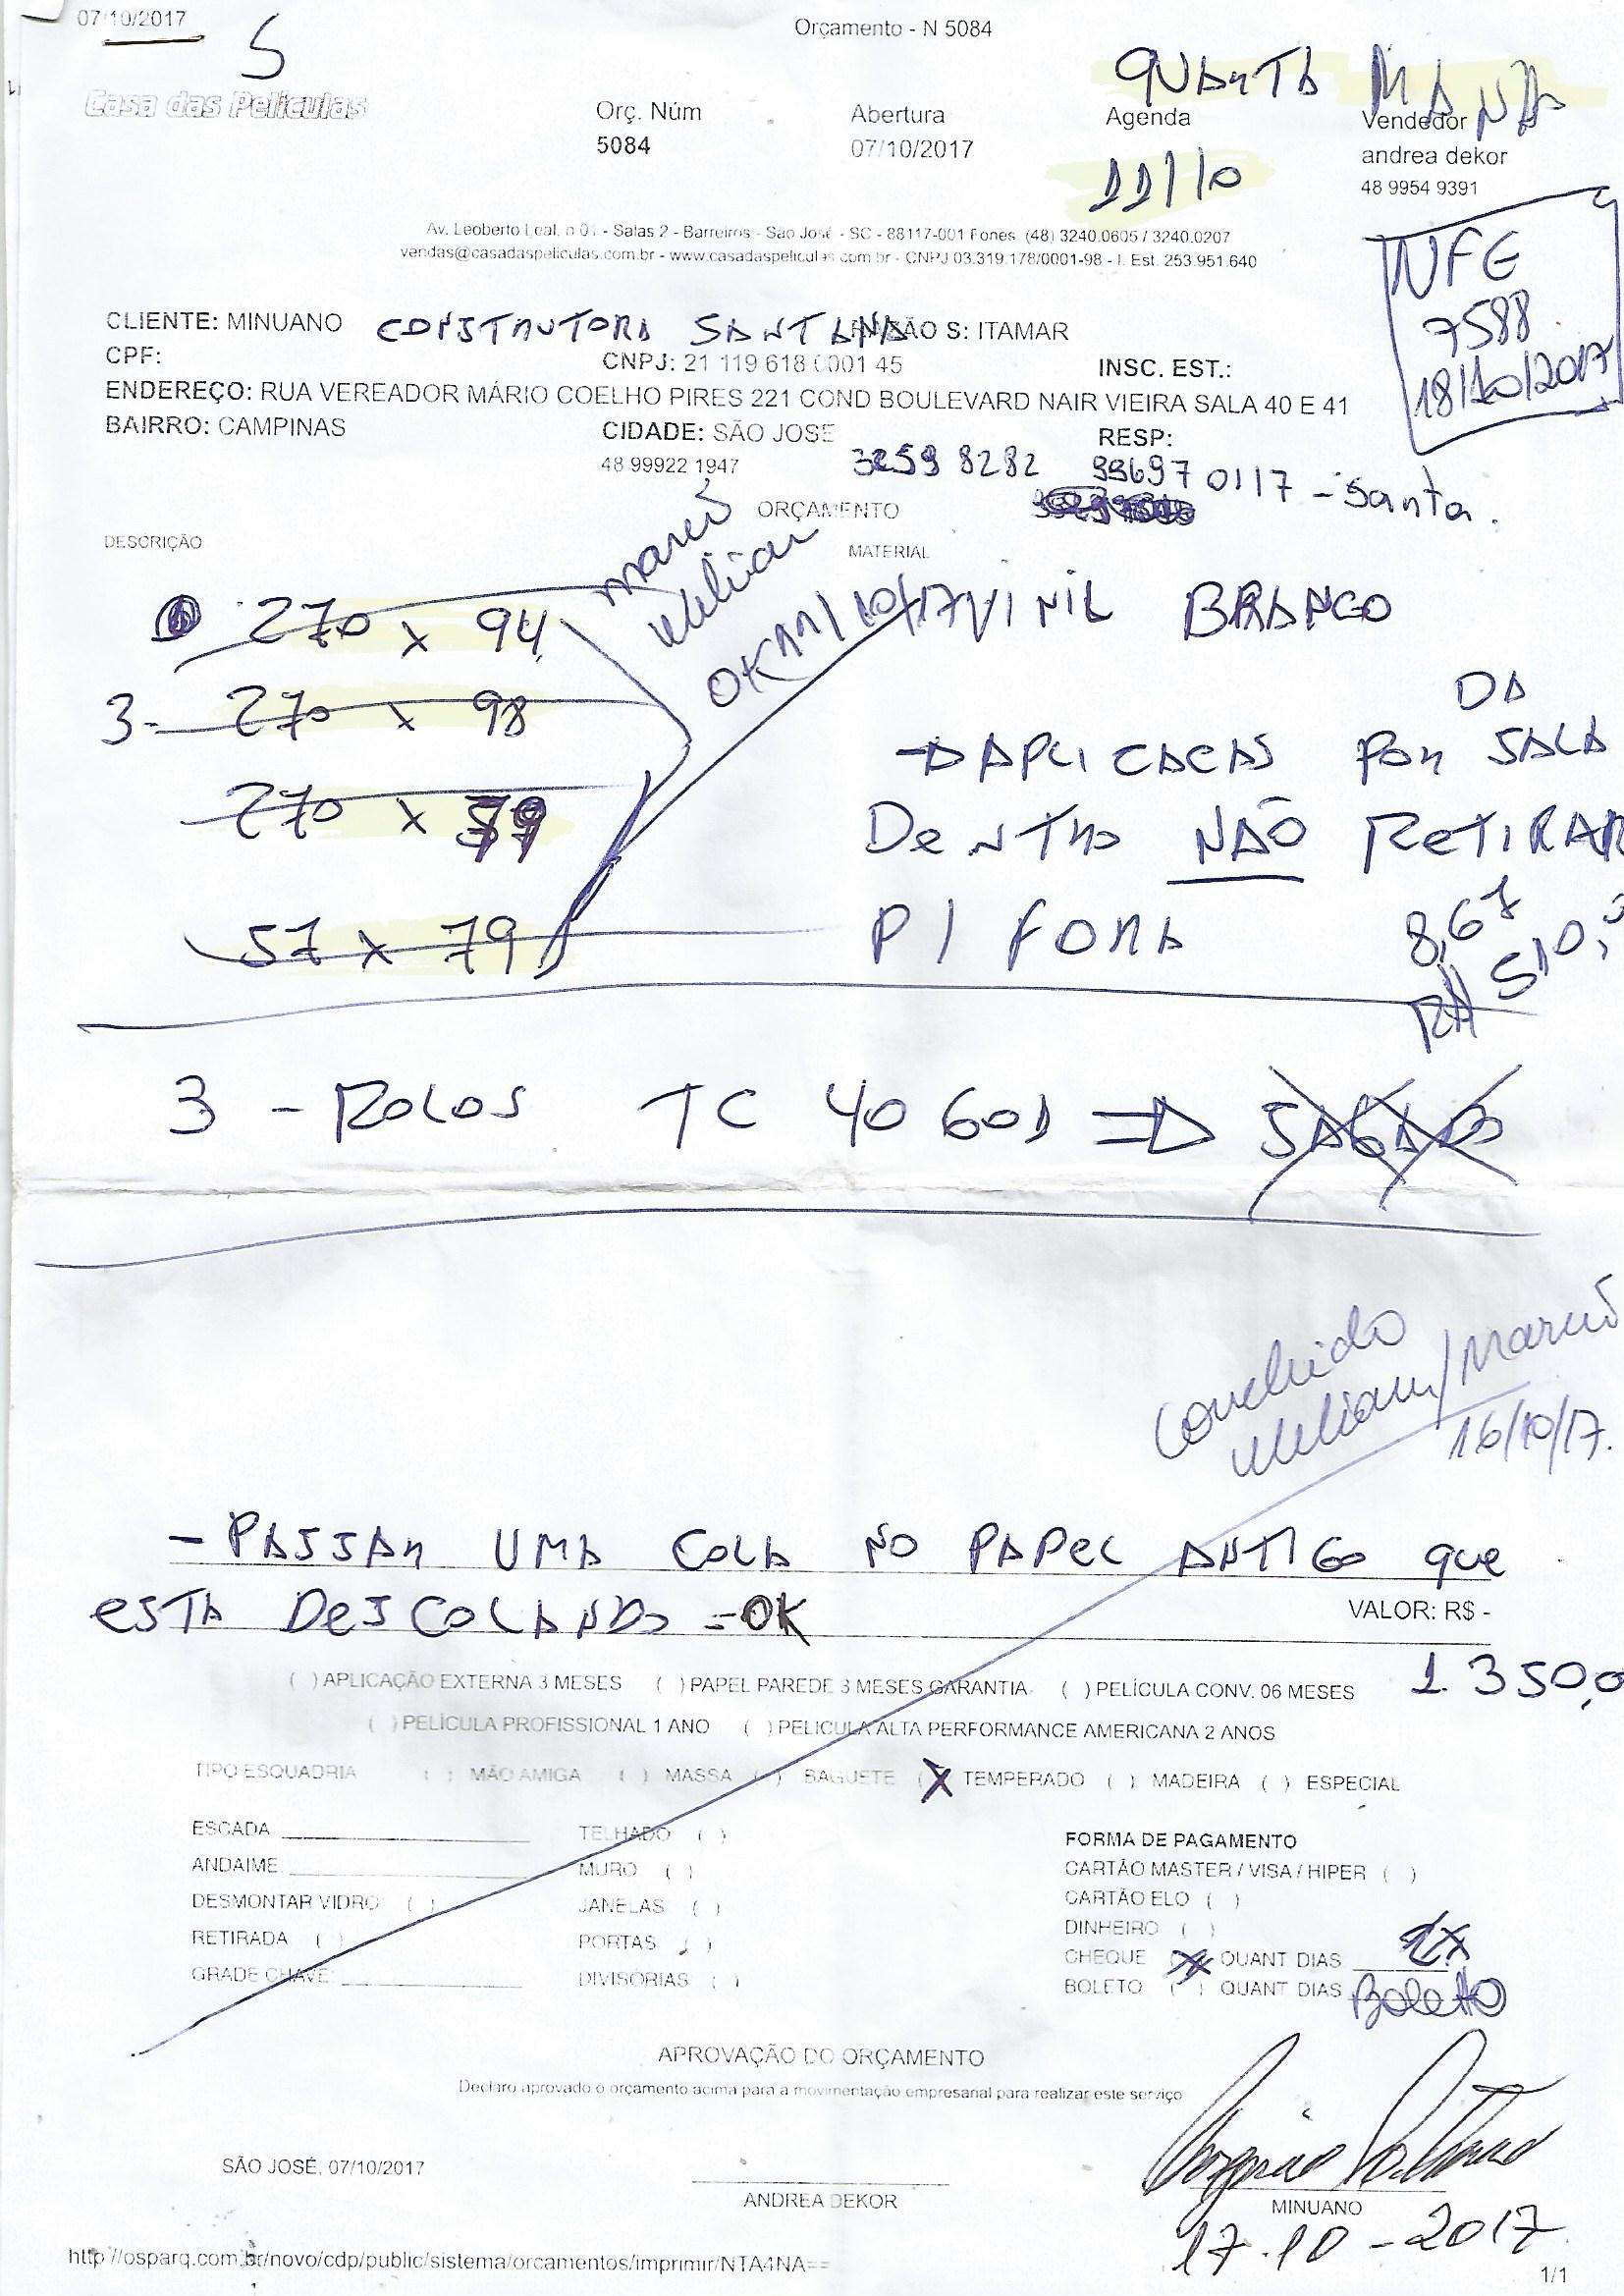 07/10/2017
Orçamento - N 5084
5
QUARTA MANHÃ
Casa das Películas
Orç. Núm Abertura Agenda Vendedor
5084 07/10/2017 11/10 andrea dekor
48 9954 9391
Av. Leoberto Leal, n 01 - Salas 2 - Barreiros - São José - SC - 88117-001 Fones (48) 3240.0605 / 3240.0207
vendas@casadaspeliculas.com.br - www.casadaspeliculas.com.br - CNPJ 03.319.178/0001-98 - I. Est. 253.951.640
NFE
7588
18/10/2017
CLIENTE: MINUANO CONSTRUTORA SANTANA RAZÃO S: ITAMAR
CPF: CNPJ: 21 119 618 0001 45 INSC. EST.:
ENDEREÇO: RUA VEREADOR MÁRIO COELHO PIRES 221 COND BOULEVARD NAIR VIEIRA SALA 40 E 41
BAIRRO: CAMPINAS CIDADE: SÃO JOSE RESP:
48 99922 1947 3259 8282 99697 0117 - Santa.
ORÇAMENTO
DESCRIÇÃO MATERIAL
270 x 94 VINIL BRANCO
OK 11/10/17
3- 270 x 98
DA
APLICACAS POR SALA
270 x 79
DENTRO NÃO RETIRAR
57 x 79
P/ FORA
8,67
R$ 510,
3 - ROLOS TC 40 60 D
Concluido
16/10/17.
- PASSAR UMA COLA NO PAPEL ANTIGO que
ESTA DESCOLANDO = OK
VALOR: R$ -
1.350,0
( ) APLICAÇÃO EXTERNA 3 MESES ( ) PAPEL PAREDE 3 MESES GARANTIA ( ) PELÍCULA CONV. 06 MESES
( ) PELÍCULA PROFISSIONAL 1 ANO ( ) PELICULA ALTA PERFORMANCE AMERICANA 2 ANOS
TIPO ESQUADRIA ( ) MÃO AMIGA ( ) MASSA ( ) BAGUETE (X TEMPERADO ( ) MADEIRA ( ) ESPECIAL
ESCADA
ANDAIME:
DESMONTAR VIDRO ( )
RETIRADA ( )
GRADE CHAVE:
TELHADO ( )
MURO ( )
JANELAS ( )
PORTAS ( )
DIVISORIAS ( )
FORMA DE PAGAMENTO
CARTÃO MASTER / VISA / HIPER ( )
CARTÃO ELO ( )
DINHEIRO ( )
CHEQUE (X) QUANT DIAS 1x
BOLETO ( ) QUANT DIAS Boletto
APROVAÇÃO DO ORÇAMENTO
Declaro aprovado o orçamento acima para a movimentação empresarial para realizar este serviço
SÃO JOSÉ, 07/10/2017
ANDREA DEKOR
MINUANO
17-10-2017
http://osparq.com.br/novo/cdp/public/sistema/orcamentos/imprimir/NTA4NA==
1/1